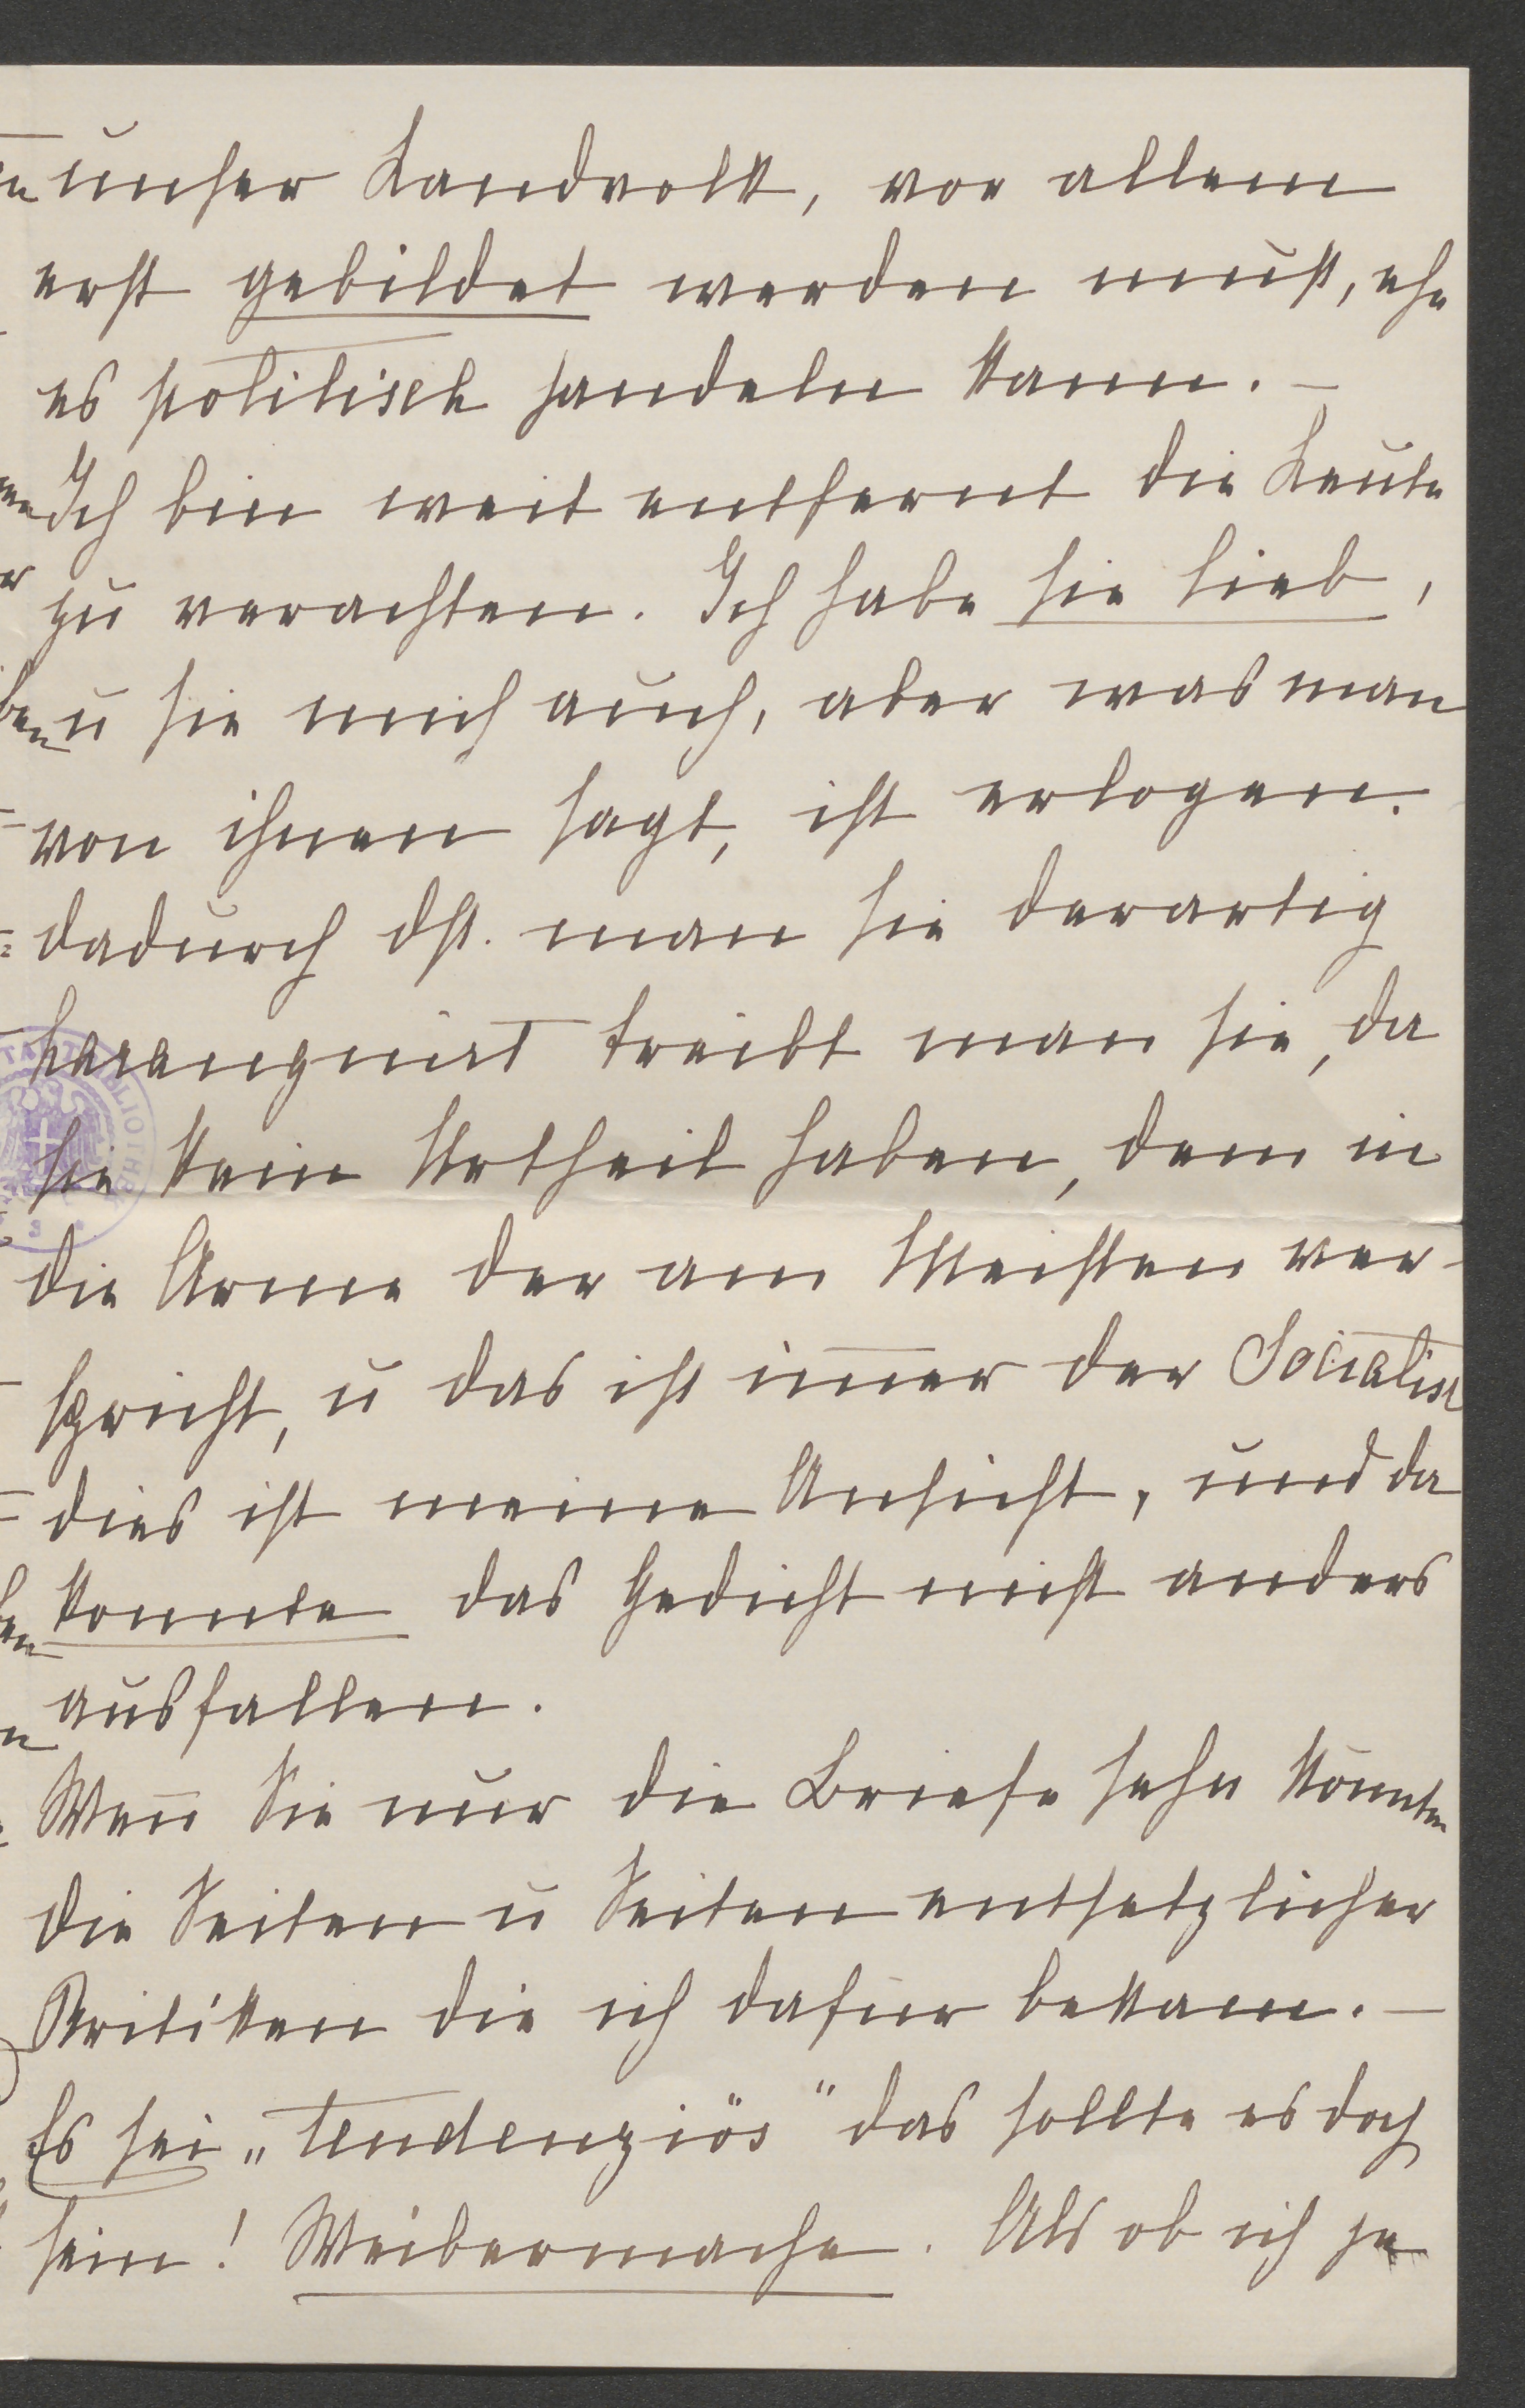 unser Landvolk, vor allem
erst gebildet werden muß, ehe
es politisch handeln kann. –
Ich bin weit entfernt die Leute
zu verachten. Ich habe sie lieb,
u sie mich auch, aber was man
von ihnen sagt, ist erlogen.
dadurch dß. man sie derartig
haranguirt treibt man sie, da
sie kein Urtheil haben, dem in
die Arme der am Meisten ver-
spricht, u das ist im̅er der Socialist
dies ist meine Ansicht, und da
konnte das Gedicht nicht anders
ausfallen.
Wen̅ Sie nur die Briefe sehn könnten
die Seiten u Seiten entsetzlicher
Kritiken die ich dafür bekam. –
Es sei „tendenziös" das sollte es doch
sein! Weibermache. Als ob ich je